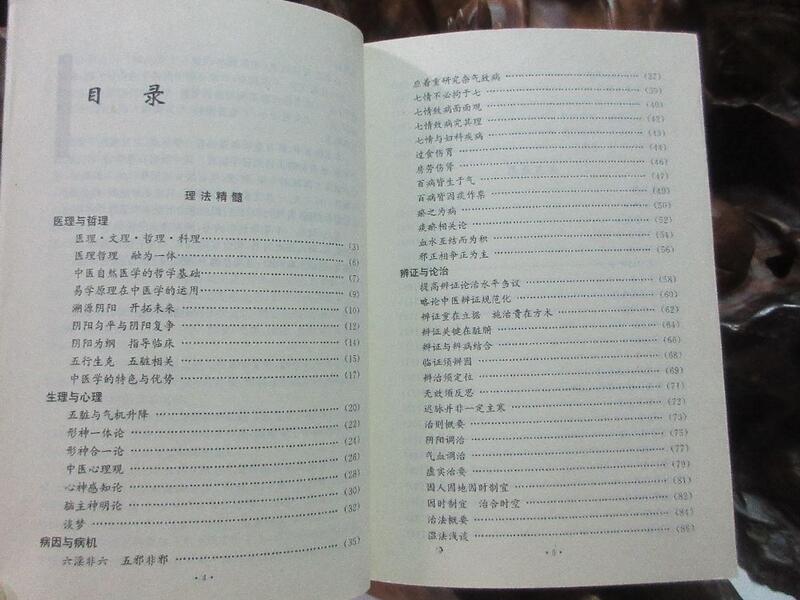 目 录
理法精髓
医理与哲理
医理·文理·哲理·料理 (3)
医理哲理 融为一体 (6)
中医自然医学的哲学基础 (7)
易学原理在中医学的运用 (9)
溯源阴阳 开拓未来 (10)
阴阳匀平与阴阳复争 (12)
阴阳为纲 指导临床 (14)
五行生克 五脏相关 (15)
中医学的特色与优势 (17)
生理与心理
五脏与气机升降 (20)
形神一体论 (22)
形神合一论 (24)
中医心理观 (26)
心神感知论 (28)
脑主神明论 (30)
谈梦 (32)
病因与病机
六淫非六 五邪非邪 (35)
· 4 ·
应着重研究杂气致病 (37)
七情不必拘于七 (39)
七情致病面面观 (40)
七情致病究其理 (42)
七情与妇科疾病 (43)
过食伤胃 (44)
房劳伤肾 (46)
百病皆生于气 (47)
百病皆因痰作祟 (49)
瘀之为病 (50)
痰瘀相关论 (52)
血水互结而为积 (54)
邪正相争正为主 (56)
辨证与论治
提高辨证论治水平刍议 (58)
略论中医辨证规范化 (60)
辨证重在立据 施治贵在方术 (62)
辨证关键在脏腑 (64)
辨证与辨病结合 (66)
临证须辨因 (68)
辨治须定位 (69)
无效须反思 (71)
迟脉并非一定主寒 (72)
治则概要 (73)
阴阳调治 (75)
气血调治 (77)
虚实治要 (79)
因人因地因时制宜 (81)
因时制宜 治合时空 (82)
治法概要 (84)
温法浅谈 (86)
· 5 ·